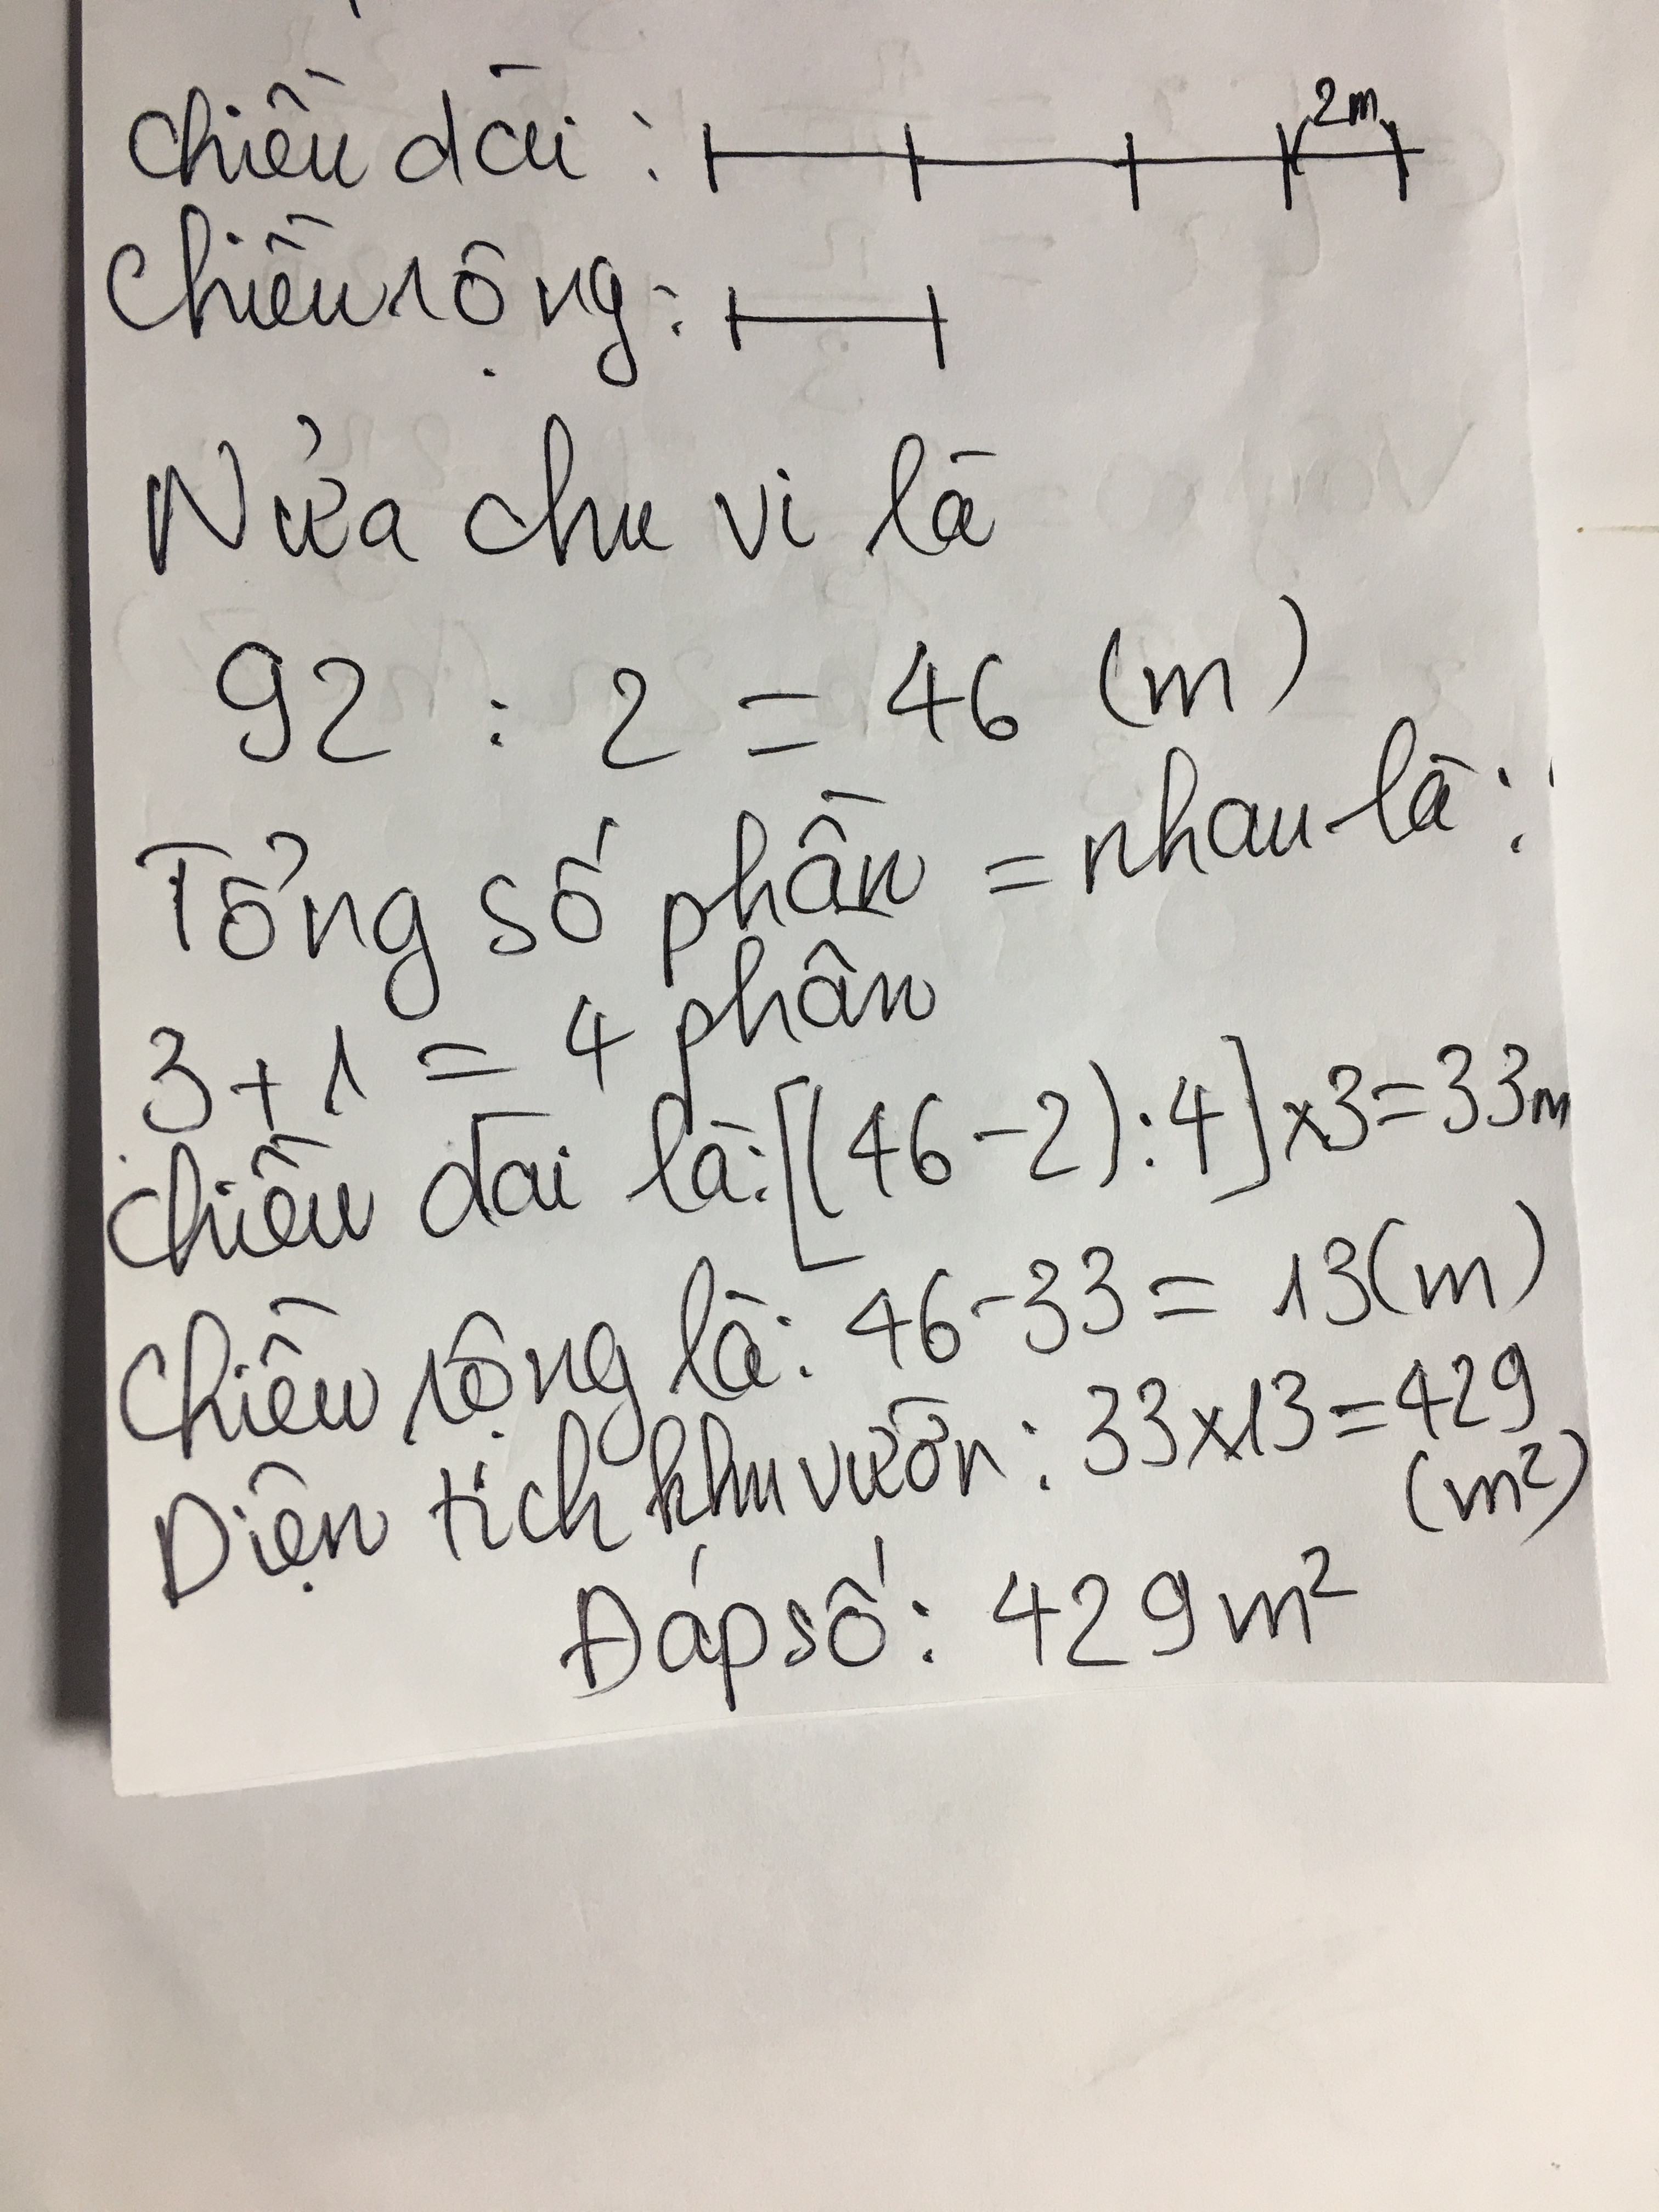 chiều dài : 2m
Chiều rộng :
Nửa chu vi là
92 : 2 = 46 (m)
Tổng số phần = nhau là :
3 + 1 = 4 phần
chiều dài là: [(46 - 2) : 4] x 3 = 33m
Chiều rộng là: 46 - 33 = 13 (m)
Diện tích khu vườn : 33 x 13 = 429
(m²)
Đáp số : 429 m²